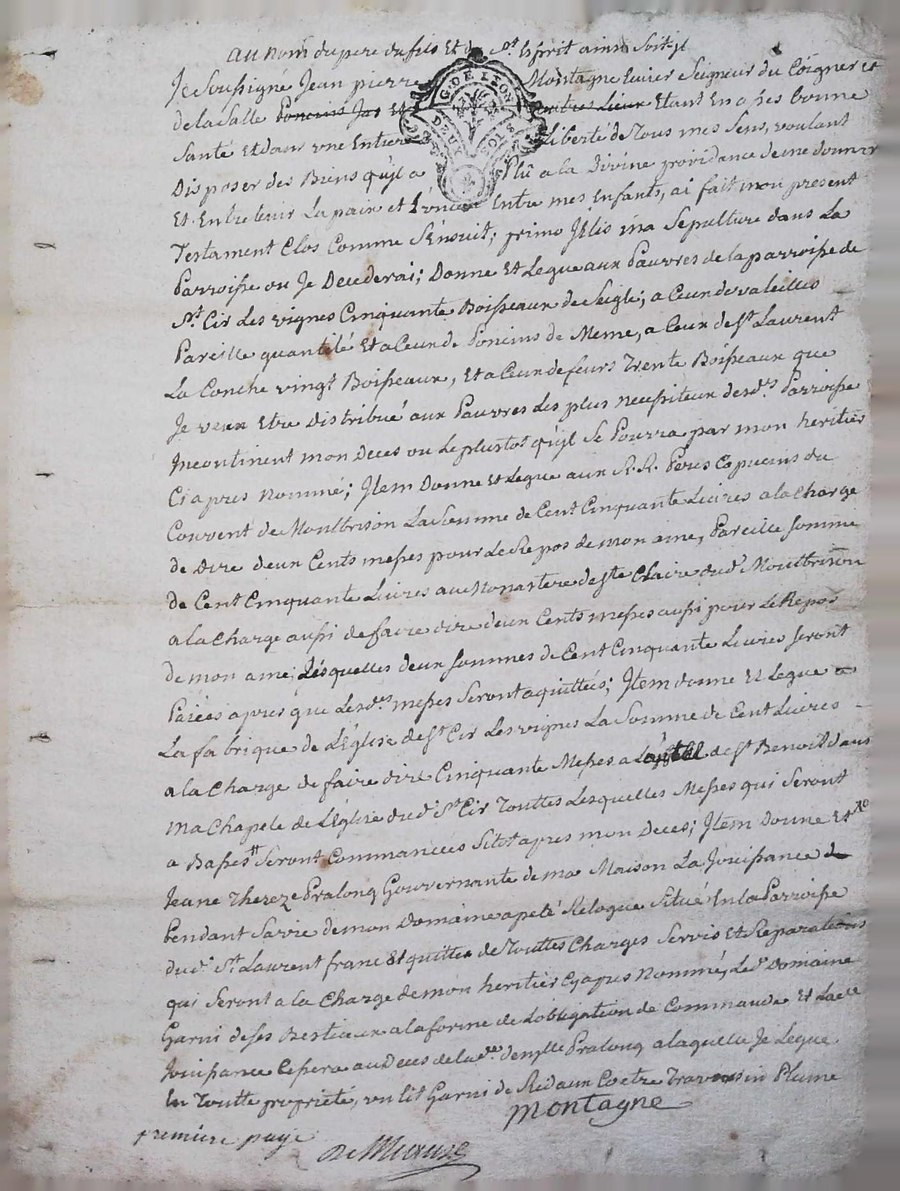 au nom du pere du fils Et du St Esprit ainsi Soit-jl
Je Soussigné Jean pierre Montagne Ecuier Seigneur du Coigner et
G. DE LION
DEUX SOLS
de la Salle Poncins Jas Et autres Lieux Etant En assés bonne
Santé Et dans une Entiere Liberté de Tous mes Sens, voulant
Disposer des Biens qu'jl a Plû a la Divine providance de me donner
Et Entretenir La paix et L'union Entre mes Enfants, ai fait mon present
Testament Clos Comme S'Ensuit; primo J'Elis ma Sepulture dans La
Parroisse ou Je Decederai; Donne Et Legue aux Pauvres de la parroisse de
St. Cir Les vignes Cinquante Boisseaux de Seigle; a Ceux de valeilles
Pareille quantité Et a Ceux de Poncins de Meme, a Ceux de St Laurent
La Conche vingt Boisseaux, Et a Ceux de feurs Trente Boisseaux que
Je veux Etre Distribué aux Pauvres Les plus necessiteux desds. Parroisse
Incontinent mon Deces ou Le plustot qu'jl Se Pourra par mon heritier
Ci apres nommé; Jtem Donne Et Legue aux R.R. Peres Capucins du
Couvent de Montbrison La Somme de Cent Cinquante Livres a la Charge
de Dire deux Cents messes pour Le Repos de mon ame, Pareille Somme
de Cent Cinquante Livres au Monastere de Ste Claire dud. Montbrison
a la Charge aussi de faire dire deux Cents messes aussi pour Le Repos
de mon ame; Lesquelles deux Sommes de Cent Cinquante Livres Seront
Paiées apres que Lesds. messes Seront aquittées; Jtem donne Et Legue a
La fabrique de L'Eglise de St Cir Les vignes La Somme de Cent Livres
a la Charge de faire dire Cinquante Messes a L'autel de St Benoit dans
Ma Chapele de L'Eglise dud. St. Cir Touttes Lesquelles Messes qui Seront
a Basses Seront Commancées Sitot apres mon Deces; Jtem Donne Et
Jeanne Thereze Pralong Gouvernante de ma Maison La Jouissance
Pendant Sa vie de mon Domaine apelé Situé En la Parroisse
dud. St. Laurent franc Et quitte de Touttes Charges Servis Et Reparations
qui Seront a la Charge de mon heritier Cy apres Nommé, Led. Domaine
Garni de Ses Bestiaux a la forme de L'obligation de Commande Et Lade
Jouissance Cessera au Deces de lade demlle Pralong a laquelle Je Legue
En Toutte propriété, un Lit Garni de Rideaux Coetre Traversin Plume
Montagne
premiere page